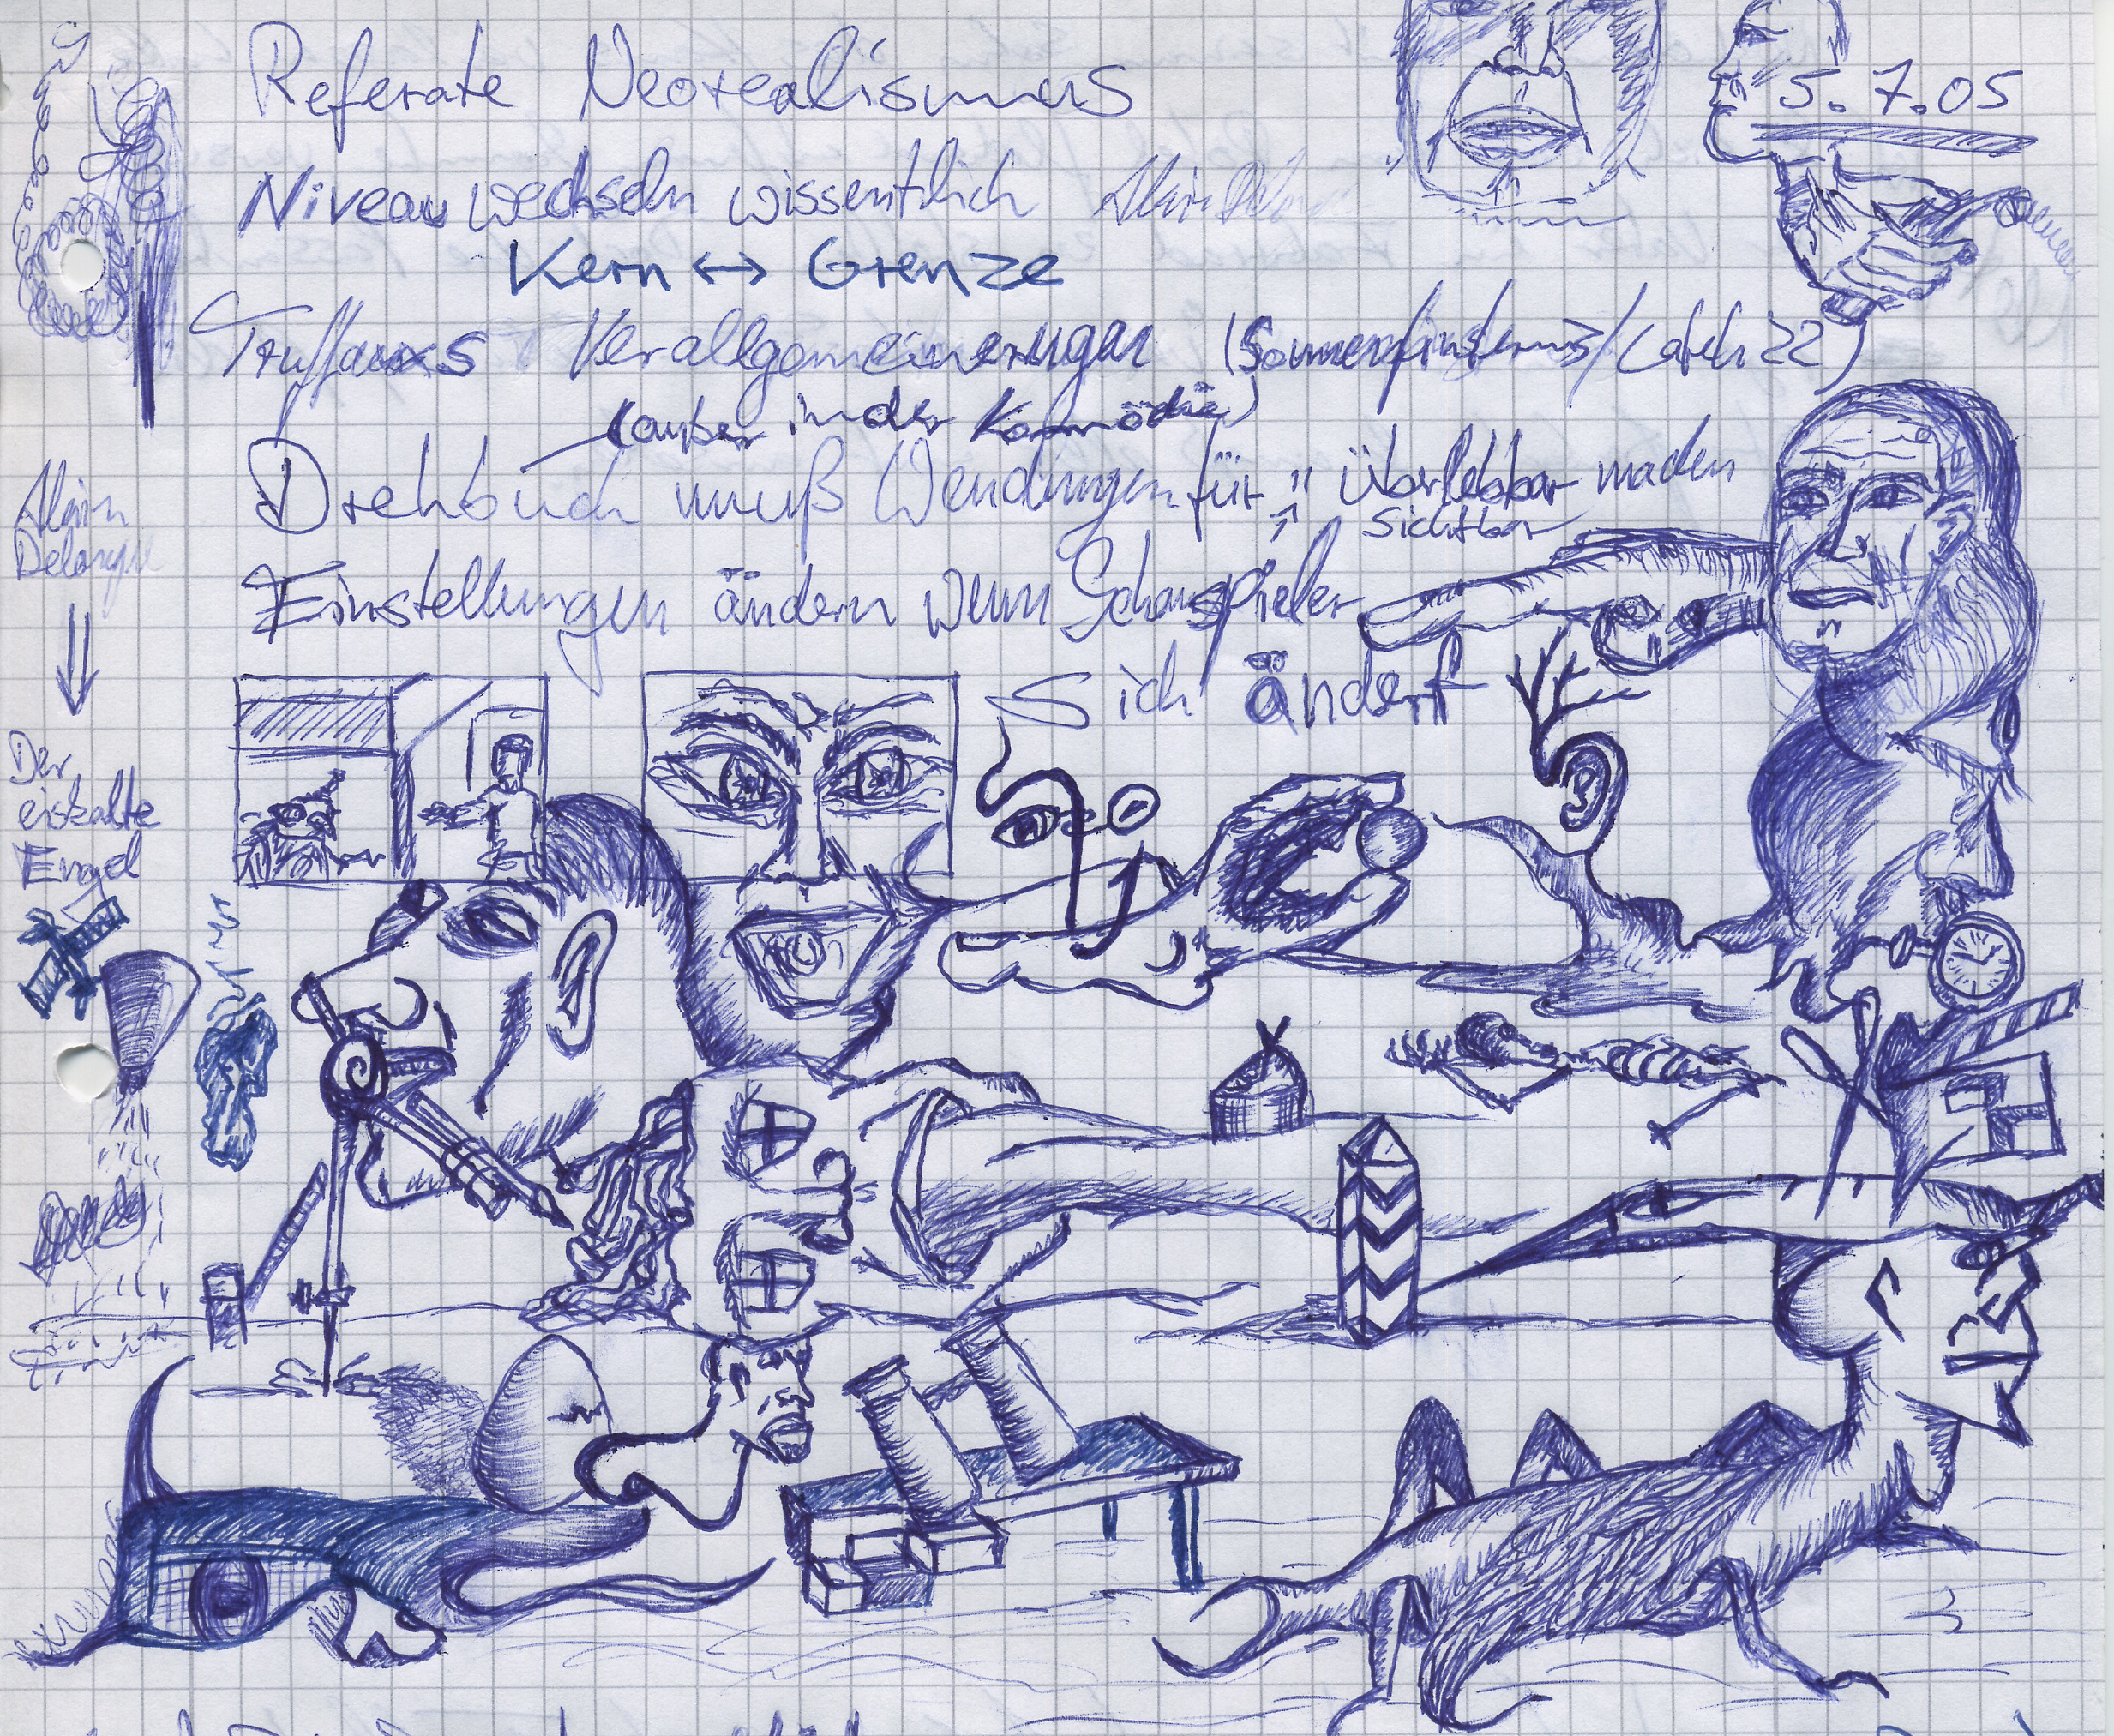 Referate Neorealismus
5.7.05
Niveau wechseln wissentlich
Kern ↔ Grenze
Verallgemeinerungen (Sonnenfinsternis/Catch 22)
(außer in der Komödie)
Drehbuch muß Wendungen für überlebbar machen
sichtbar
Einstellungen ändern wenn Schauspieler
sich ändert
Alain
Der
eiskalte
Engel